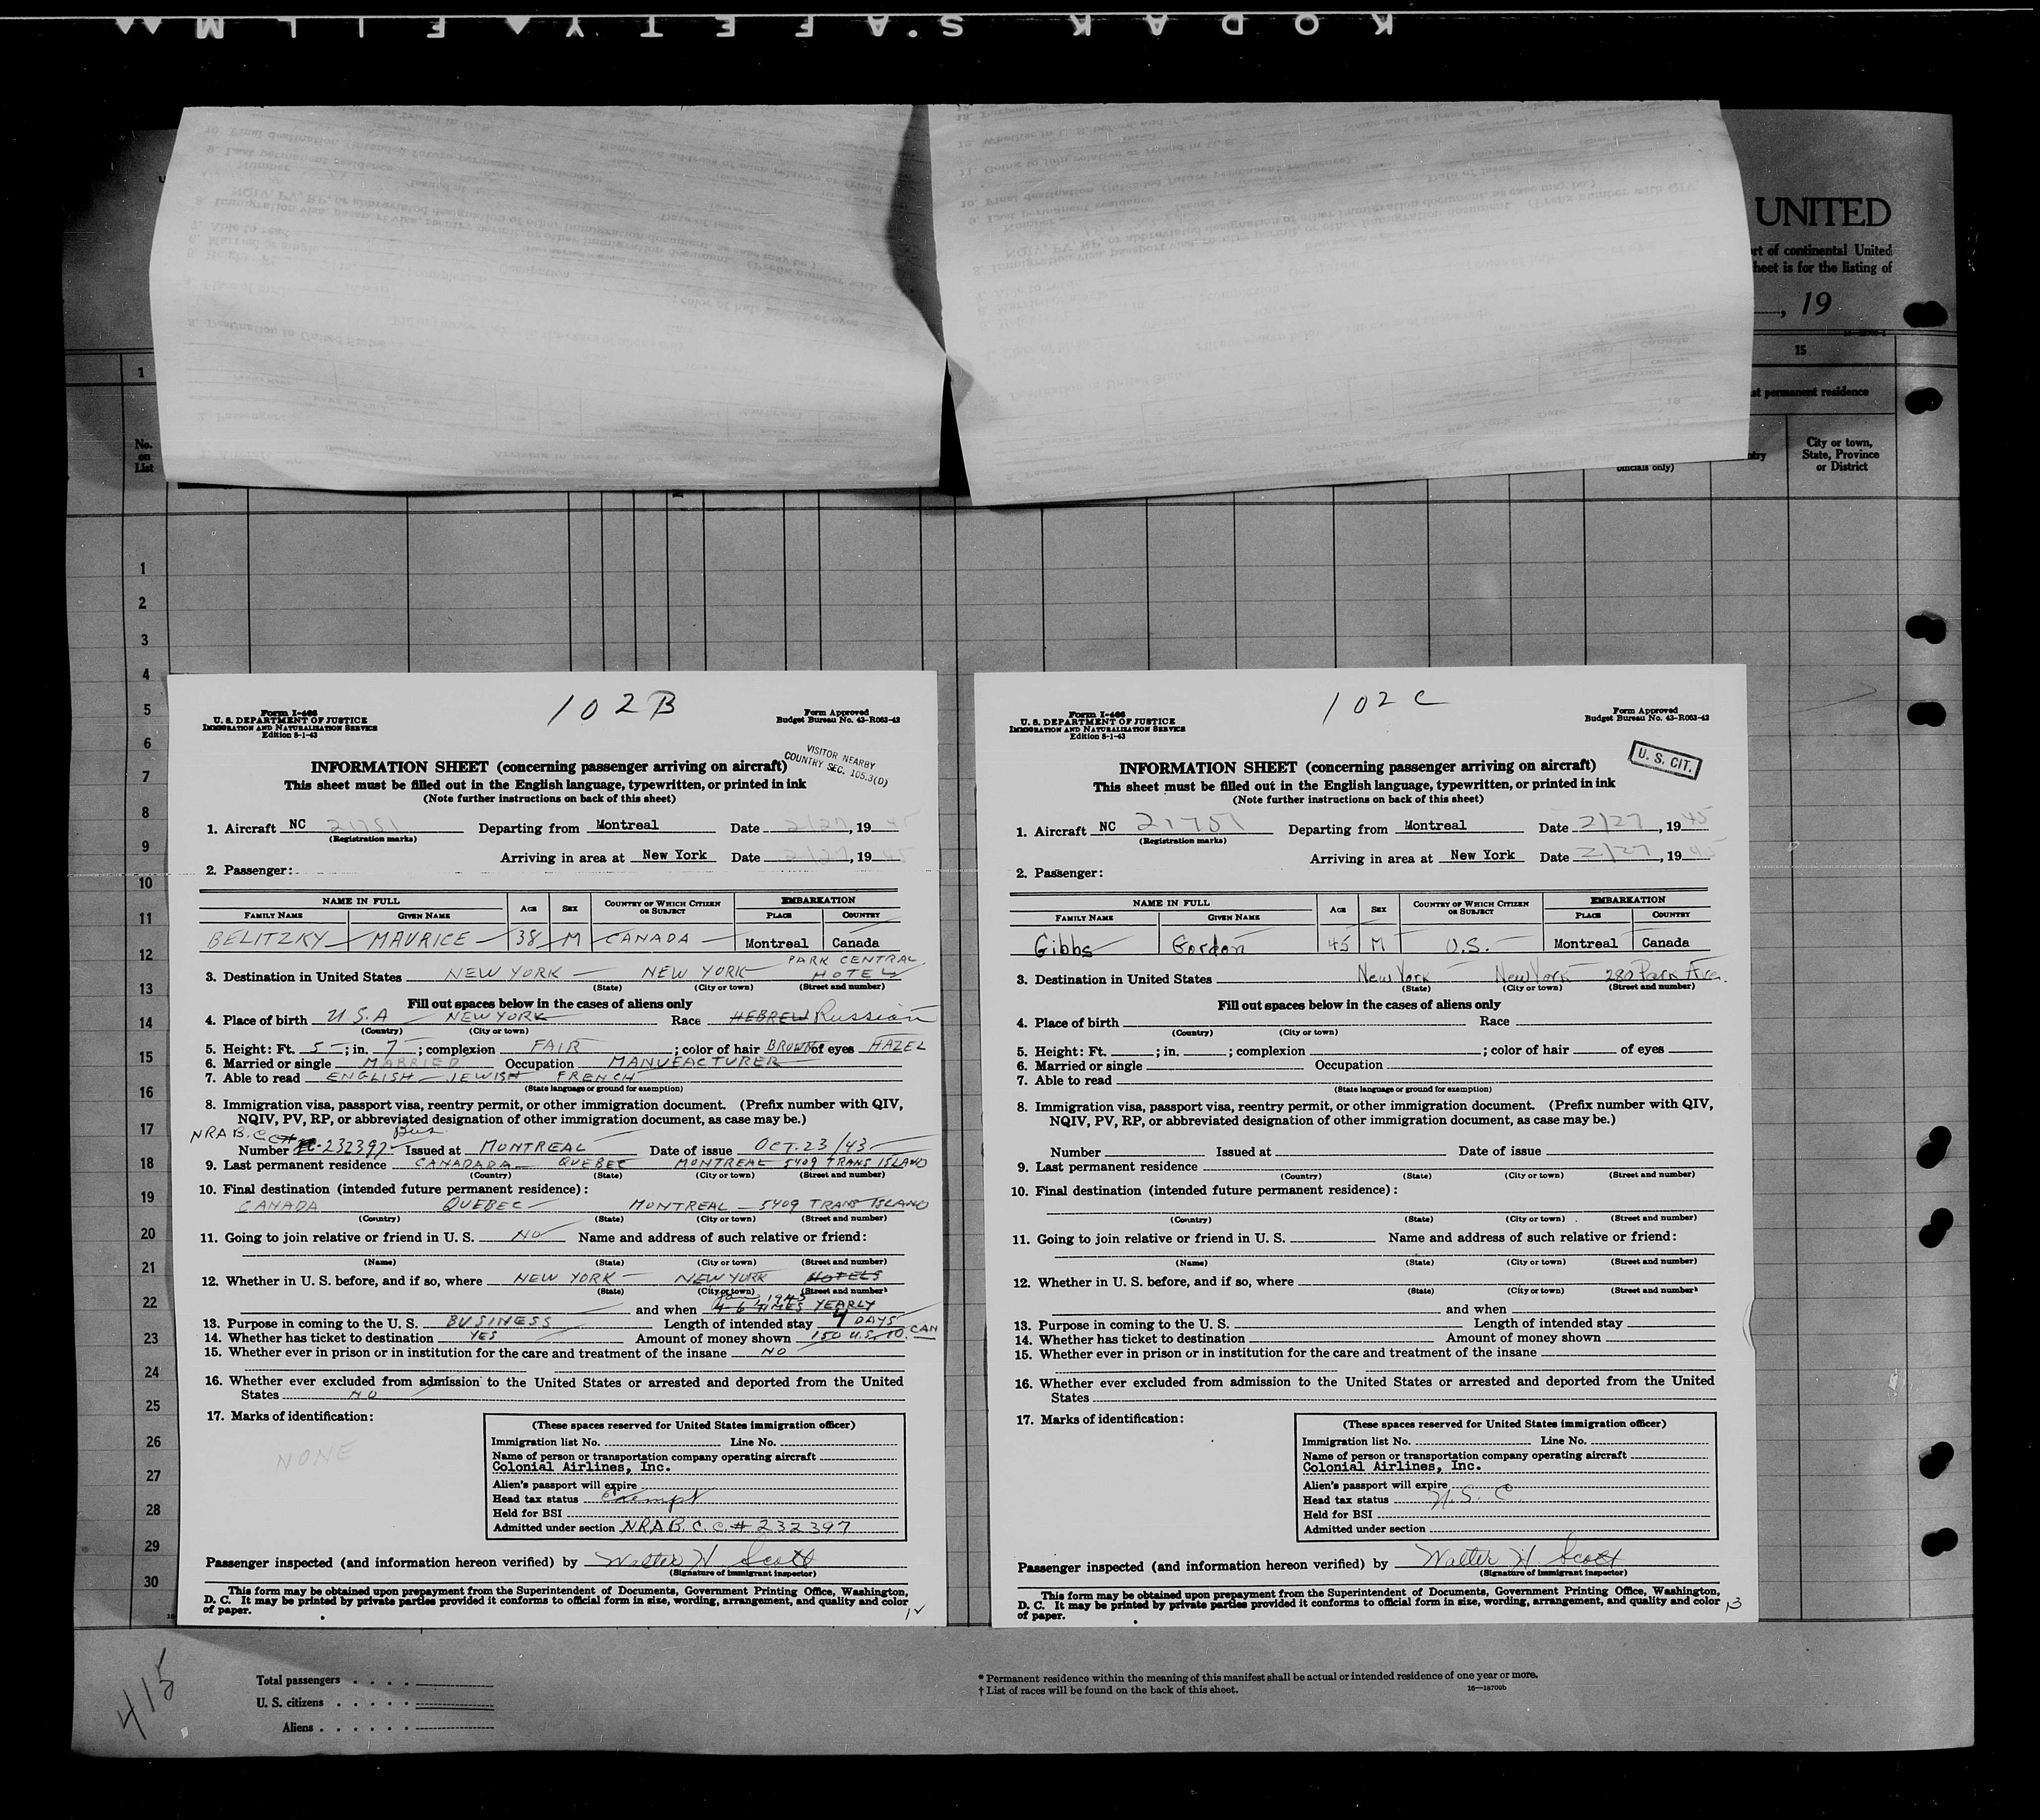 KODAK SAFETY FILM
UNITED
rt of continental United
heet is for the listing of
, 19
1
15
st permanent residence
No.
on
List
officials only)
City or town,
State, Province
or District
1
2
3
4
5
6
7
8
9
10
11
12
13
14
15
16
17
18
19
20
21
22
23
24
25
26
27
28
29
30
102B
Form I-466
U. S. DEPARTMENT OF JUSTICE
IMMIGRATION AND NATURALIZATION SERVICE
Edition 8-1-43
Form Approved
Budget Bureau No. 43-R063-42
VISITOR NEARBY
COUNTRY SEC. 105.3(D)
INFORMATION SHEET (concerning passenger arriving on aircraft)
This sheet must be filled out in the English language, typewritten, or printed in ink
(Note further instructions on back of this sheet)
1. Aircraft NC 21751 Departing from Montreal Date 2/27, 1945
(Registration marks)
Arriving in area at New York Date 2/27, 1945
2. Passenger:
NAME IN FULL AGE SEX COUNTRY OF WHICH CITIZEN OR SUBJECT EMBARKATION
FAMILY NAME GIVEN NAME PLACE COUNTRY
BELITZKY MAURICE 38 M CANADA Montreal Canada
PARK CENTRAL
3. Destination in United States NEW YORK NEW YORK HOTEL
(State) (City or town) (Street and number)
Fill out spaces below in the cases of aliens only
4. Place of birth U.S.A NEW YORK Race HEBREW Russian
(Country) (City or town)
5. Height: Ft. 5; in. 7; complexion FAIR; color of hair BROWN of eyes HAZEL
6. Married or single MARRIED Occupation MANUFACTURER
7. Able to read ENGLISH JEWISH FRENCH
(State language or ground for exemption)
8. Immigration visa, passport visa, reentry permit, or other immigration document. (Prefix number with QIV,
NQIV, PV, RP, or abbreviated designation of other immigration document, as case may be.)
NRAB.CC# Bus.
Number 232397 Issued at MONTREAL Date of issue OCT. 23/43
9. Last permanent residence CANADARA QUEBEC MONTREAL 5409 TRANS ISLAND
(Country) (State) (City or town) (Street and number)
10. Final destination (intended future permanent residence):
CANADA QUEBEC MONTREAL 5409 TRANS ISLAND
(Country) (State) (City or town) (Street and number)
11. Going to join relative or friend in U. S. NO Name and address of such relative or friend:
(Name) (State) (City or town) (Street and number)
12. Whether in U. S. before, and if so, where NEW YORK NEW YORK HOTELS
(State) (City or town) (Street and number)
Jan 1945
and when 4-6 TIMES YEARLY
13. Purpose in coming to the U. S. BUSINESS Length of intended stay 4 DAYS
14. Whether has ticket to destination YES Amount of money shown 150 U.S. 10. CAN
15. Whether ever in prison or in institution for the care and treatment of the insane NO
16. Whether ever excluded from admission to the United States or arrested and deported from the United
States NO
17. Marks of identification:
NONE
(These spaces reserved for United States immigration officer)
Immigration list No. Line No.
Name of person or transportation company operating aircraft
Colonial Airlines, Inc.
Alien's passport will expire
Head tax status Exempt
Held for BSI
Admitted under section NRAB.C.C.# 232397
Passenger inspected (and information hereon verified) by Walter H Scott
(Signature of immigrant inspector)
This form may be obtained upon prepayment from the Superintendent of Documents, Government Printing Office, Washington,
D. C. It may be printed by private parties provided it conforms to official form in size, wording, arrangement, and quality and color
of paper.
12
102C
Form I-466
U. S. DEPARTMENT OF JUSTICE
IMMIGRATION AND NATURALIZATION SERVICE
Edition 8-1-43
Form Approved
Budget Bureau No. 43-R063-42
U. S. CIT.
INFORMATION SHEET (concerning passenger arriving on aircraft)
This sheet must be filled out in the English language, typewritten, or printed in ink
(Note further instructions on back of this sheet)
1. Aircraft NC 21751 Departing from Montreal Date 2/27, 1945
(Registration marks)
Arriving in area at New York Date 2/27, 1945
2. Passenger:
NAME IN FULL AGE SEX COUNTRY OF WHICH CITIZEN OR SUBJECT EMBARKATION
FAMILY NAME GIVEN NAME PLACE COUNTRY
Gibbs Gordon 45 M U.S. Montreal Canada
3. Destination in United States New York New York 280 Park Ave.
(State) (City or town) (Street and number)
Fill out spaces below in the cases of aliens only
4. Place of birth Race
(Country) (City or town)
5. Height: Ft. ; in. ; complexion ; color of hair of eyes
6. Married or single Occupation
7. Able to read
(State language or ground for exemption)
8. Immigration visa, passport visa, reentry permit, or other immigration document. (Prefix number with QIV,
NQIV, PV, RP, or abbreviated designation of other immigration document, as case may be.)
Number Issued at Date of issue
9. Last permanent residence
(Country) (State) (City or town) (Street and number)
10. Final destination (intended future permanent residence):
(Country) (State) (City or town) (Street and number)
11. Going to join relative or friend in U. S. Name and address of such relative or friend:
(Name) (State) (City or town) (Street and number)
12. Whether in U. S. before, and if so, where
(State) (City or town) (Street and number)
and when
13. Purpose in coming to the U. S. Length of intended stay
14. Whether has ticket to destination Amount of money shown
15. Whether ever in prison or in institution for the care and treatment of the insane
16. Whether ever excluded from admission to the United States or arrested and deported from the United
States
17. Marks of identification:
(These spaces reserved for United States immigration officer)
Immigration list No. Line No.
Name of person or transportation company operating aircraft
Colonial Airlines, Inc.
Alien's passport will expire
Head tax status U.S.C.
Held for BSI
Admitted under section
Passenger inspected (and information hereon verified) by Walter H Scott
(Signature of immigrant inspector)
This form may be obtained upon prepayment from the Superintendent of Documents, Government Printing Office, Washington,
D. C. It may be printed by private parties provided it conforms to official form in size, wording, arrangement, and quality and color
of paper.
13
415
Total passengers
U. S. citizens
Aliens
* Permanent residence within the meaning of this manifest shall be actual or intended residence of one year or more.
† List of races will be found on the back of this sheet.
16—18700b